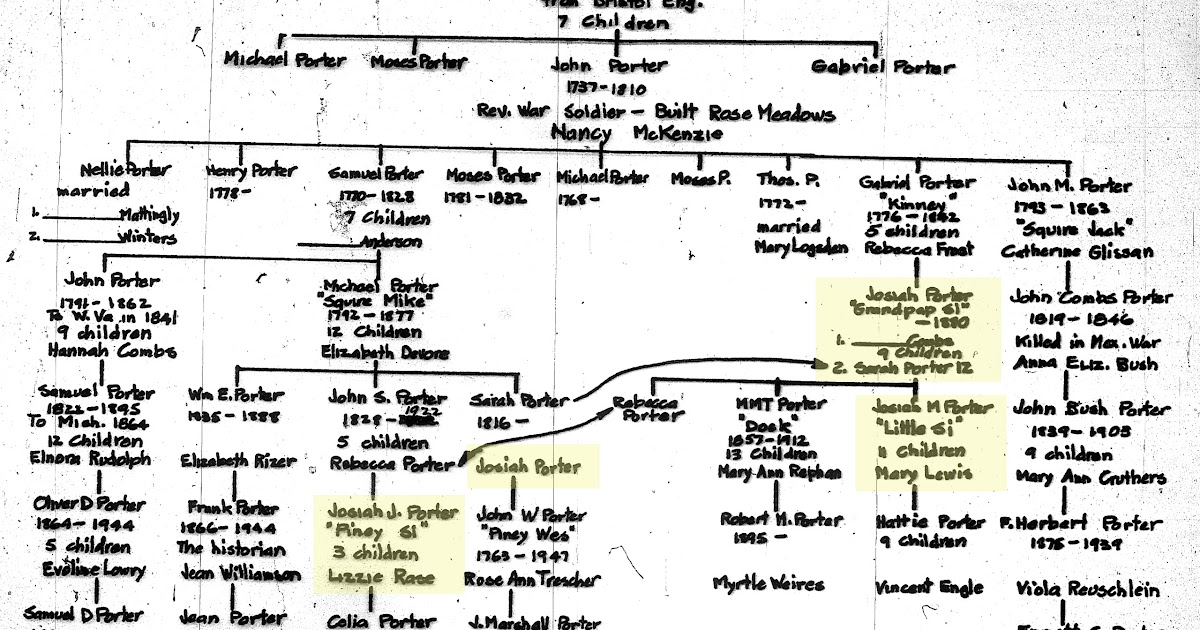 7 Children
Michael Porter
Moses Porter
John Porter
1737-1810
Gabriel Porter
Rev. War Soldier - Built Rose Meadows
Nancy McKenzie
Nellie Porter
married
1. ______ Mattingly
2. ______ Winters
Henry Porter
1778-
Samuel Porter
1770-1828
7 Children
______ Anderson
Moses Porter
1781-1832
Michael Porter
1768-
Moses P.
Thos. P.
1772-
married
Mary Logsdon
Gabriel Porter
"Kinney"
1776-1842
5 children
Rebecca Frost
John M. Porter
1793-1863
"Squire Jack"
Catherine Glissan
John Porter
1791-1862
To W. Va. in 1841
9 children
Hannah Combs
Michael Porter
"Squire Mike"
1792-1877
12 Children
Elizabeth Devore
Josiah Porter
"Grandpap Si"
-1880
1. ______ Combs
9 Children
2. Sarah Porter 12
John Combs Porter
1819-1846
Killed in Mex. War
Anna Eliz. Bush
Samuel Porter
1822-1895
To Mich. 1864
12 Children
Elnora Rudolph
Wm E. Porter
1835-1888
Elizabeth Rizer
John S. Porter
1828-1922
5 children
Rebecca Porter
Sarah Porter
1816-
Josiah Porter
Rebecca
Porter
MMT Porter
"Dock"
1857-1912
13 Children
Mary Ann Rephan
Josiah M Porter
"Little Si"
11 Children
Mary Lewis
John Bush Porter
1839-1903
9 children
Mary Ann Cruthers
Oliver D Porter
1864-1944
5 children
Evoline Lowry
Frank Porter
1866-1944
The historian
Jean Williamson
Josiah J. Porter
"Piney Si"
3 children
Lizzie Rase
John W Porter
"Piney Wes"
1763-1947
Rose Ann Trescher
Robert M. Porter
1895-
Myrtle Weires
Hattie Porter
9 children
Vincent Engle
F. Herbert Porter
1875-1939
Viola Reuschlein
Samuel D Porter
Jean Porter
Celia Porter
J. Marshall Porter